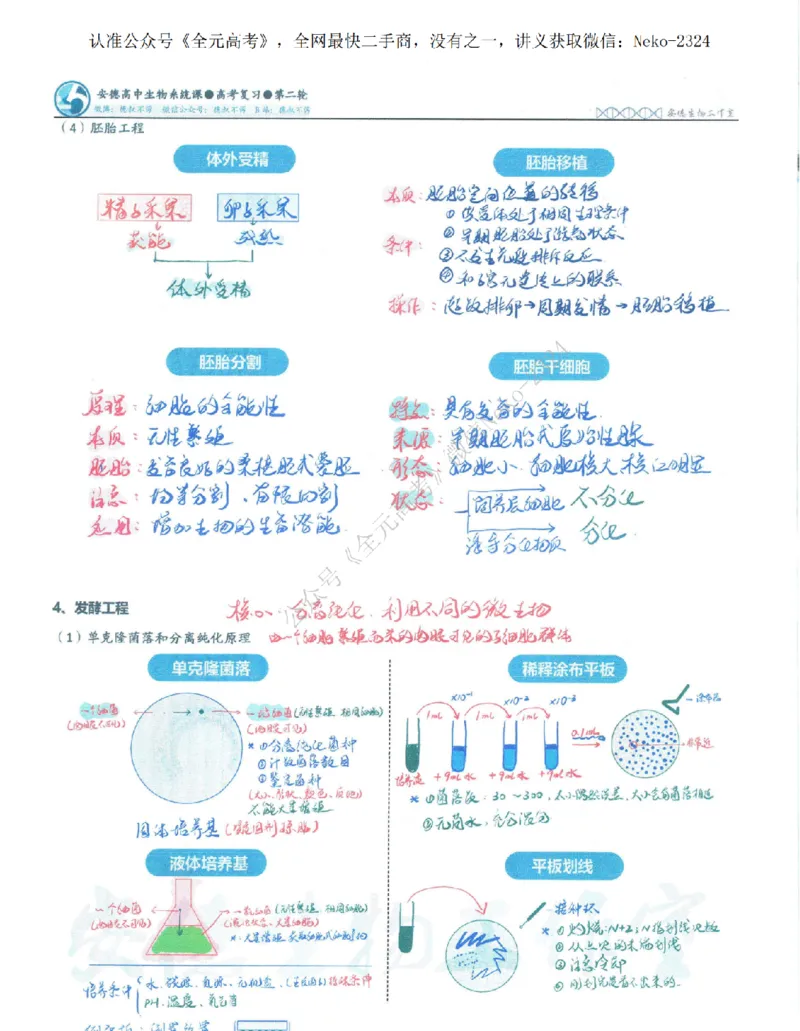 认准公众号《全元高考》，全网最快二手商，没有之一，讲义获取微信：Neko-2324
安德高中生物系统课●高考复习●第二轮
安德生物工作室
（4）胚胎工程
体外受精
精子采集 卵子采集
获能 成熟
体外受精
胚胎移植
本质：胚胎空间位置的转移
条件：
①供受体处于相同生理条件
②早期胚胎处于游离状态
③不发生免疫排斥反应
④和子宫建立生理上的联系
操作：超数排卵→同期发情→胚胎移植
胚胎分割
原理：细胞的全能性
本质：无性繁殖
胚胎：发育良好的桑椹胚或囊胚
注意：均等分割、有限切割
应用：增加生物的生育潜能
胚胎干细胞
特点：具有发育的全能性
来源：早期胚胎或原始性腺
形态：细胞小、细胞核大、核仁明显
状态：
饲养层细胞 不分化
诱导分化物质 分化
4、发酵工程
核心：分离纯化、利用不同的微生物
（1）单克隆菌落和分离纯化原理
由一个细胞繁殖而来的肉眼可见的子细胞群体
单克隆菌落
一个细菌
（肉眼不可见）
（无性繁殖、相同细胞）
（肉眼可见）
* ①分离纯化菌种
②计数菌落数目
③鉴定菌种
（大小、形状、颜色、
不能大量增殖
固体培养基（凝固剂琼脂）
稀释涂布平板
×10⁻¹ ×10⁻² ×10⁻³
1mL 1mL 1mL
0.1mL
涂布器
培养液 +9mL水 +9mL水 +9mL水
* ①菌落数：30～300，
②无菌水，充分混匀
液体培养基
一个细菌
（肉眼不可见）
（无性繁殖、相同细胞）
*：大量增殖、
培养条件
水、碳源、氮源、无机盐、
PH、温度、氧气等
平板划线
接种环
* ①灼烧：N+2；N指划线次数
②从上次的末端划线
③注意冷却